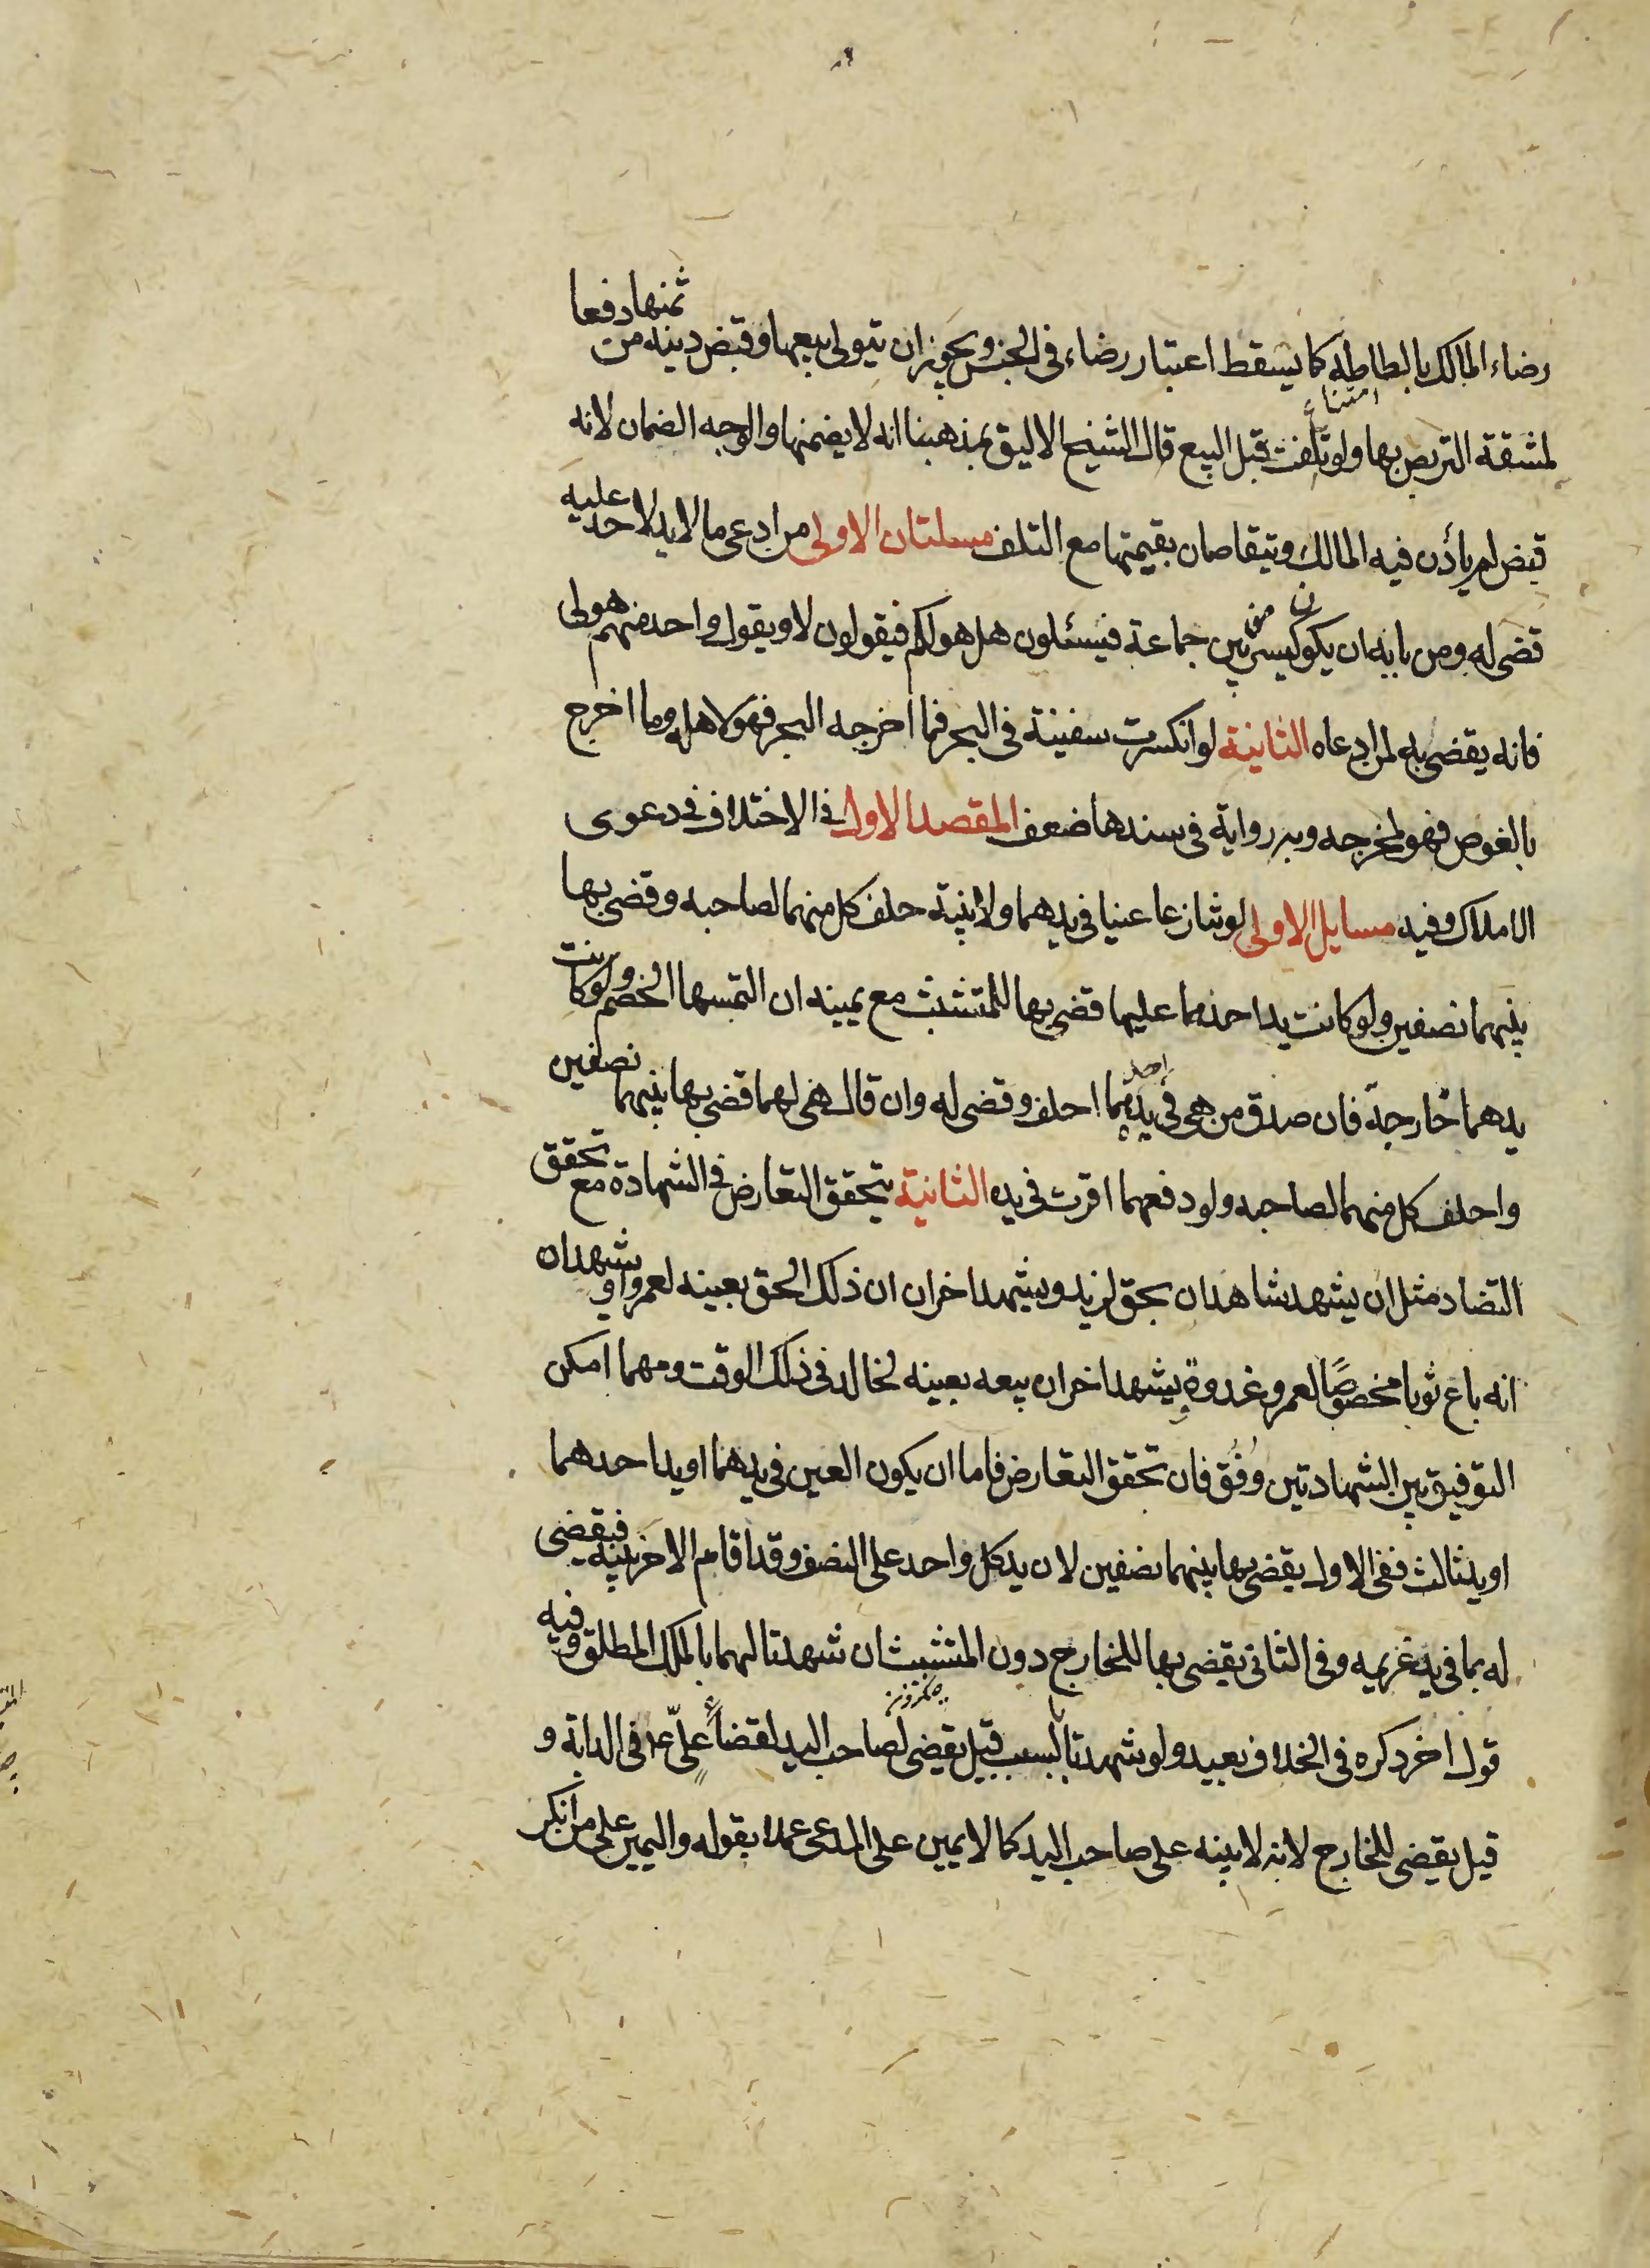 رضاء المالك بالطاطه كما يسقط اعتبار رضاء في الجنس ويجوز ان يتولى بيعها وقبض دينه من ثمنها دفعا
لمشقة التربص بها ولو تلفت قبل البيع قال الشيخ الاليق بمذهبنا انه لا يضمنها والوجه الضمان لانه
قبض لم يأذن فيه المالك ويتقاصان بقيمتها مع التلف مسلتان الاولى من ادعى ما لا يد لاحد عليه
قضى له ومن بابه ان يكون كيس بين جماعة فيسئلون هل هو لكم فيقولون لا ويقول واحد منهم هو لى
فانه يقضى به لمن ادعاه الثانية لو انكسرت سفينة في البحر فما اخرجه البحر فهو لاهله وما اخرج
بالغوص فهو لمخرجه وبه رواية في سندها ضعف المقصد الاول في الاختلاف في دعوى
الاملاك وفيه مسايل الاولى لو تنازعا عينا في يدهما ولا بينة حلف كل منهما لصاحبه وقضى بها
بينهما نصفين ولو كانت يد احدهما عليها قضى بها للمتشبث مع يمينه ان التمسها الخصم ولو كانت
يدهما خارجة فان صدق من هى في يده احدهما احلف وقضى له وان قال هى لهما قضى بها بينهما نصفين
واحلف كل منهما لصاحبه ولو دفعهما اقرت في يده الثانية يتحقق التعارض في الشهادة مع تحقق
التضاد مثل ان يشهد شاهدان بحق لزيد ويشهد اخران ان ذلك الحق بعينه لعمرو او يشهدان
انه باع ثوبا مخصوصًا لعمرو غدوة ويشهد اخران ببيعه بعينه لخالد في ذلك الوقت ومهما امكن
التوفيق بين الشهادتين وُفُق فان تحقق التعارض فاما ان يكون العين في يدهما او يد احدهما
او يد ثالث ففى الاول يقضى بها بينهما نصفين لان يد كل واحد على النصف وقد اقام الاخر بينه فيقضى
له بما في يد غريمه وفى الثانى يقضى بها للخارج دون المتشبث ان شهدتا لهما بالملك المطلق وفيه
قول اخر ذكره في الخلاف بعيد ولو شهدتا بالسبب قيل يقضى لصاحب اليد لقضاء علىّ ع في الدابة و
قيل يقضى للخارج لانه لا بينه على صاحب اليد كما لا يمين على المدعى عملا بقوله واليمين على من انكر